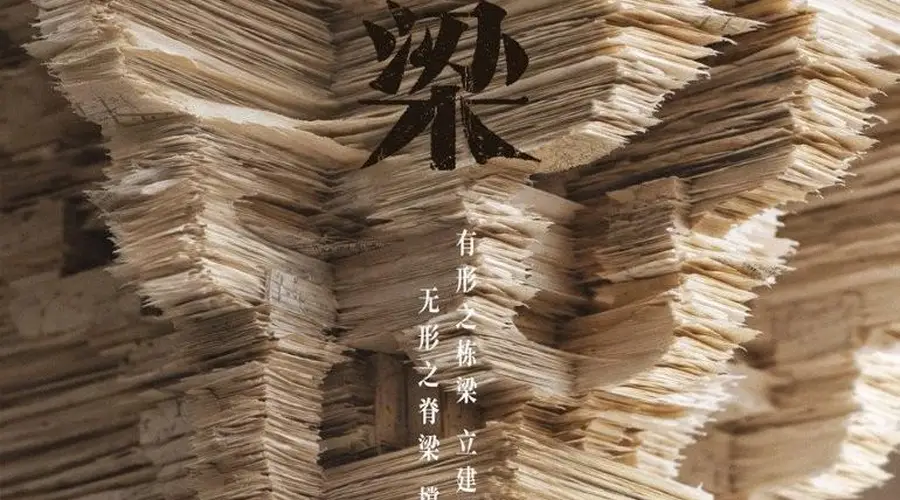 梁
有形之栋梁 立建
无形之脊梁